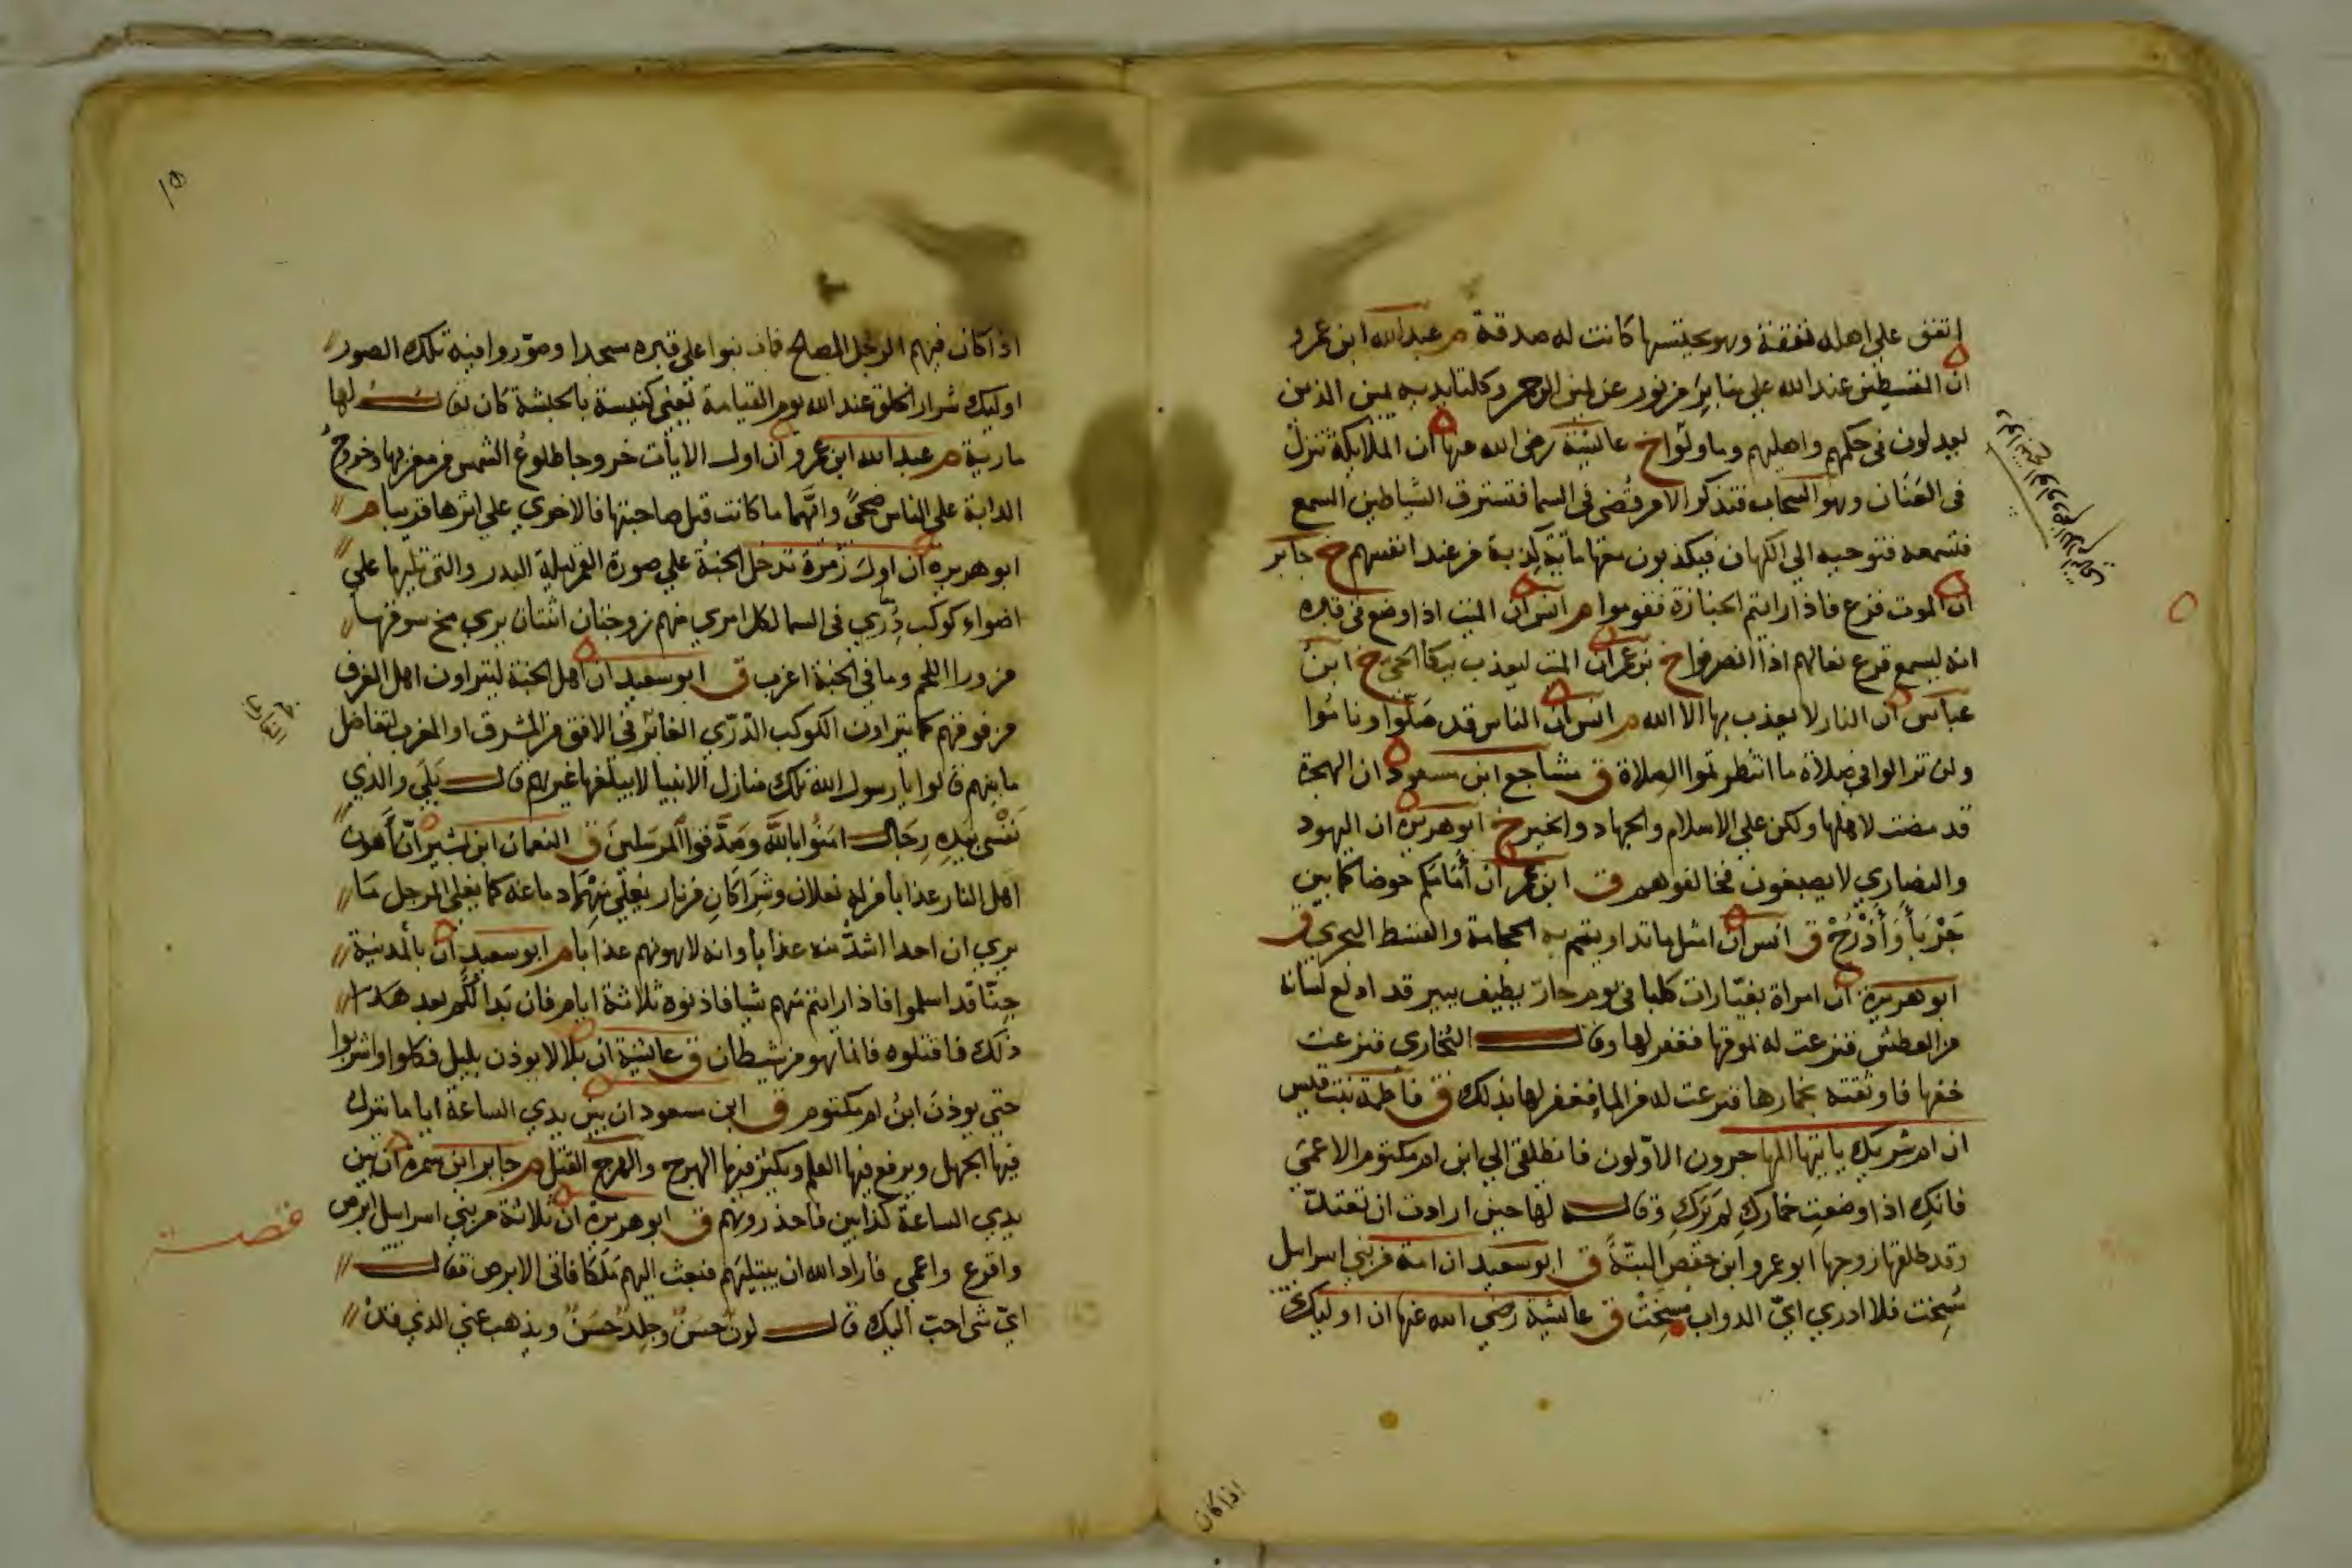 انفق على اهله نفقة وهو يحتسبها كانت له صدقة م عبدالله ابن عمرو
ان المقسطين عند الله على منابر من نور عن يمين الرحمن وكلتا يديه يمين الذين
يعدلون فى حكمهم واهليهم وما ولوا خ عائشة رضى الله عنها ان الملائكة تنزل
فى العنان وهو السحاب فتذكر الامر قضى فى السما فتسترق الشياطين السمع
فتسمعه فتوحيه الى الكهان فيكذبون معها مائة كذبة من عند انفسهم خ جابر
ان الموت فزع فاذا رايتم الجنازة فقوموا م انس ان الميت اذا وضع فى قبره
انه ليسمع قرع نعالهم اذا انصرفوا خ عمر ان الميت ليعذب ببكا الحى خ ابن
عباس ان النار لا يعذب بها الا الله م انس ان الناس قد صلوا وناموا
ولن تزالوا فى صلاة ما انتظرتموا الصلاة ق مشاجع ابن مسعود ان الهجرة
قد مضت لاهلها ولكن على الاسلام والجهاد والخير خ ابو هريرة ان اليهود
والنصارى لا يصبغون فخالفوهم ق ابن عمر ان أمامكم حوضا كما بين
جَرْبَأ وَأَذْرُحْ ق انس ان امثل ما تداويتم به الحجامة والقسط البحرى ق
ابو هريرة ان امراة بغيا رات كلبا فى يوم حار يطيف ببير قد ادلع لسانه
من العطش فنزعت له بموقها فغفر لها وقال البخارى فنزعت
خفها فاوثقته بخمارها فنزعت له من الما فغفر لها بذلك ق فاطمة بنت قيس
ان ام شريك ياتيها المهاجرون الاولون فانطلقى الى ابن ام مكتوم الاعمى
فانك اذا وضعت خمارك لم يرك وقال لها حين ارادت ان تعتد
وقد طلقها زوجها ابو عمرو ابن حفص البتة ق ابو سعيد ان امة من بنى اسرايل
مسخت فلا ادرى اى الدواب مسخت ق عائشة رضى الله عنها ان اوليك
اذا كان
اذا كان فيهم الرجل الصالح فمات بنوا على قبره مسجدا وصوروا فيه تلك الصور
اوليك شرار الخلق عند الله يوم القيامة يعنى كنيسة بالحبشة كان يقال لها
مارية م عبد الله ابن عمرو ان اول الايات خروجا طلوع الشمس من مغربها وخروج
الدابة على الناس ضحى وايهما ما كانت قبل صاحبتها فالاخرى على اثرها قريبا م
ابو هريره ان اول زمرة تدخل الجنة على صورة القمر ليلة البدر والتى تليها على
اضواء كوكب درى فى السما لكل امرى منهم زوجتان اثنتان يرى مخ سوقهما
من ورا اللحم وما فى الجنة اعزب ق ابو سعيد ان اهل الجنة ليتراون اهل الغرف
من فوقهم كما يتراون الكوكب الدرى الغابر فى الافق من المشرق او المغرب لتفاضل
ما بينهم قالوا يا رسول الله تلك منازل الانبيا لا يبلغها غيرهم قال بلى والذى
نفسى بيده رجال امنوا بالله وصدقوا المرسلين ق النعمان ابن بشير ان أهون
اهل النار عذابا من له نعلان وشراكان من نار يغلى منهما دماغه كما يغلى المرجل ما
يرى ان احدا اشد منه عذابا وانه لاهونهم عذابا م ابو سعيد ان بالمدينة
جنا قد اسلموا فاذا رايتم منهم شيا فاذنوه ثلاثة ايام فان بدا لكم بعد هذا
ذلك فاقتلوه فانما هو من شيطان ق عائشة ان بلالا يوذن بليل فكلوا واشربوا
حتى يوذن ابن ام مكتوم ق ابن مسعود ان بين يدى الساعة اياما ينزل
فيها الجهل ويرفع فيها العلم ويكثر فيها الهرج والهرج القتل م جابر ابن سمرة ان بين
يدى الساعة كذابين فاحذروهم ق ابو هريرة ان ثلاثة من بنى اسرايل ابرص
واقرع واعمى فاراد الله ان يبتليهم فبعث اليهم ملكا فاتى الابرص فقال
اى شى احب اليك قال لون حسن وجلد حسن ويذهب عنى الذى قد